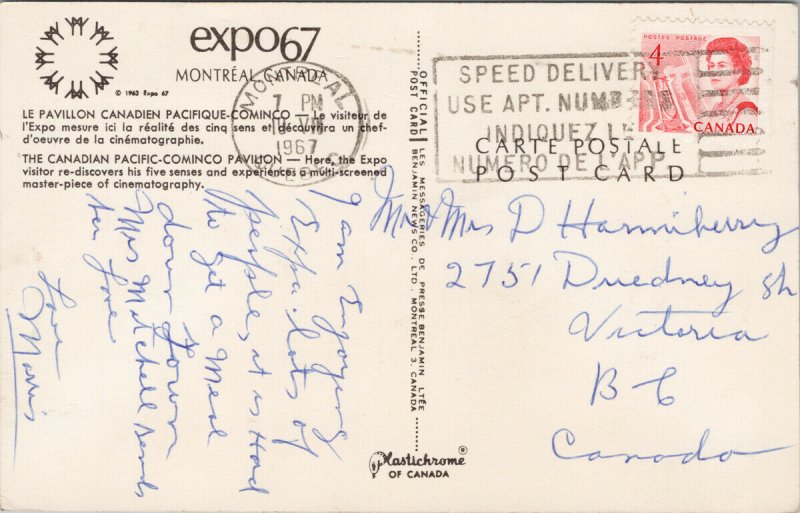 expo67
MONTRÉAL, CANADA
© 1963 Expo 67
LE PAVILLON CANADIEN PACIFIQUE-COMINCO — Le visiteur de
l'Expo mesure ici la réalité des cinq sens et découvrira un chef-
d'oeuvre de la cinématographie.
THE CANADIAN PACIFIC-COMINCO PAVILION — Here, the Expo
visitor re-discovers his five senses and experiences a multi-screened
master-piece of cinematography.
MONTREAL
7 PM
1967
I am Enjoying
Expo. lots of
people, it is Hard
to get a Meal
down Town
Mrs Mitchell sends
her Love
Love
Norris
OFFICIAL POST CARD
LES MESSAGERIES DE PRESSE BENJAMIN LTÉE
BENJAMIN NEWS CO., LTD. MONTREAL 3, CANADA
Plastichrome®
OF CANADA
SPEED DELIVERY
USE APT. NUMBER
INDIQUEZ LE
NUMERO DE L'APP.
POSTES POSTAGE
4
CANADA
CARTE POSTALE
POST CARD
Mr & Mrs D Hanniberry
2751 Duedney St
Victoria
B C
Canada